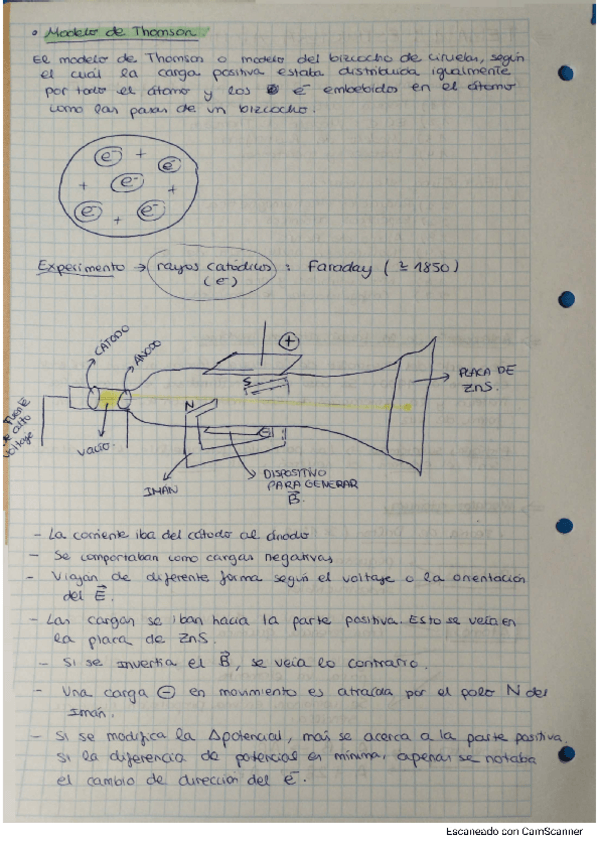 • Modelo de Thomson
El modelo de Thomson o modelo del bizcocho de ciruelas, según
el cuál la carga positiva estaba distribuida igualmente
por todo el átomo y los e⁻ embebidos en el átomo
como las pasas de un bizcocho.
e⁻ + e⁻
+ e⁻ +
e⁻ + e⁻
Experimento → rayos catódicos : Faraday (≃ 1850)
(e⁻)
CÁTODO
ÁNODO
+
PLACA DE
ZnS.
S
N
Fuente
de alto
voltaje
vacío.
IMAN
DISPOSITIVO
PARA GENERAR
B⃗.
- La corriente iba del cátodo al ánodo
- Se comportaban como cargas negativas
- Viajan de diferente forma según el voltaje o la orientación
del E⃗.
- Las cargas se iban hacia la parte positiva. Esto se veía en
la placa de ZnS.
- Si se invertía el B⃗, se veía lo contrario.
- Una carga ⊖ en movimiento es atraída por el polo N del
Imán.
- Si se modifica la Δpotencial, más se acerca a la parte positiva.
Si la diferencia de potencial es mínima, apenas se notaba
el cambio de dirección del e⁻.
Escaneado con CamScanner